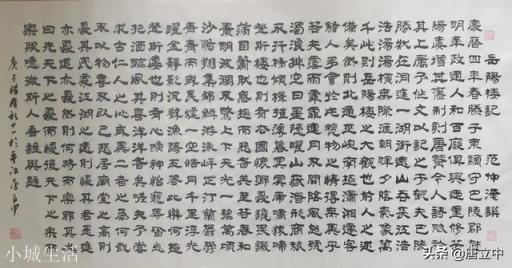 岳陽樓記 范仲淹撰
慶曆四年春滕子京謫守巴陵郡越
明年政通人和百廢俱興乃重修岳
陽樓增其舊制刻唐賢今人詩賦於
其上屬予作文以記之予觀夫巴陵
勝狀在洞庭一湖銜遠山吞長江浩
浩湯湯橫無際涯朝暉夕陰氣象萬
千此則岳陽樓之大觀也前人之述
備矣然則北通巫峽南極瀟湘遷客
騷人多會於此覽物之情得無異乎
若夫霪雨霏霏連月不開陰風怒號
濁浪排空日星隱曜山岳潛形商旅
不行檣傾楫摧薄暮冥冥虎嘯猿啼
登斯樓也則有去國懷鄉憂讒畏譏
滿目蕭然感極而悲者矣至若春和
景明波瀾不驚上下天光一碧萬頃
沙鷗翔集錦鱗游泳岸芷汀蘭郁郁
青青而或長煙一空皓月千里浮光
躍金靜影沉璧漁歌互答此樂何極
登斯樓也則有心曠神怡寵辱皆忘
把酒臨風其喜洋洋者矣嗟夫予嘗
求古仁人之心或異二者之為何哉
不以物喜不以己悲居廟堂之高則
憂其民處江湖之遠則憂其君是進
亦憂退亦憂然則何時而樂耶其必
曰先天下之憂而憂後天下之樂而
樂歟噫微斯人吾誰與歸
庚子 於平江
小城生活
头条 @唐立中